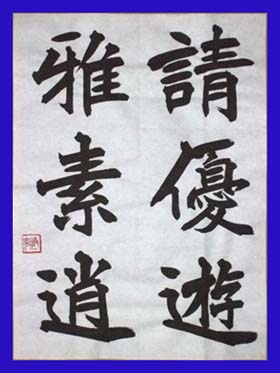 請優遊
雅素逍